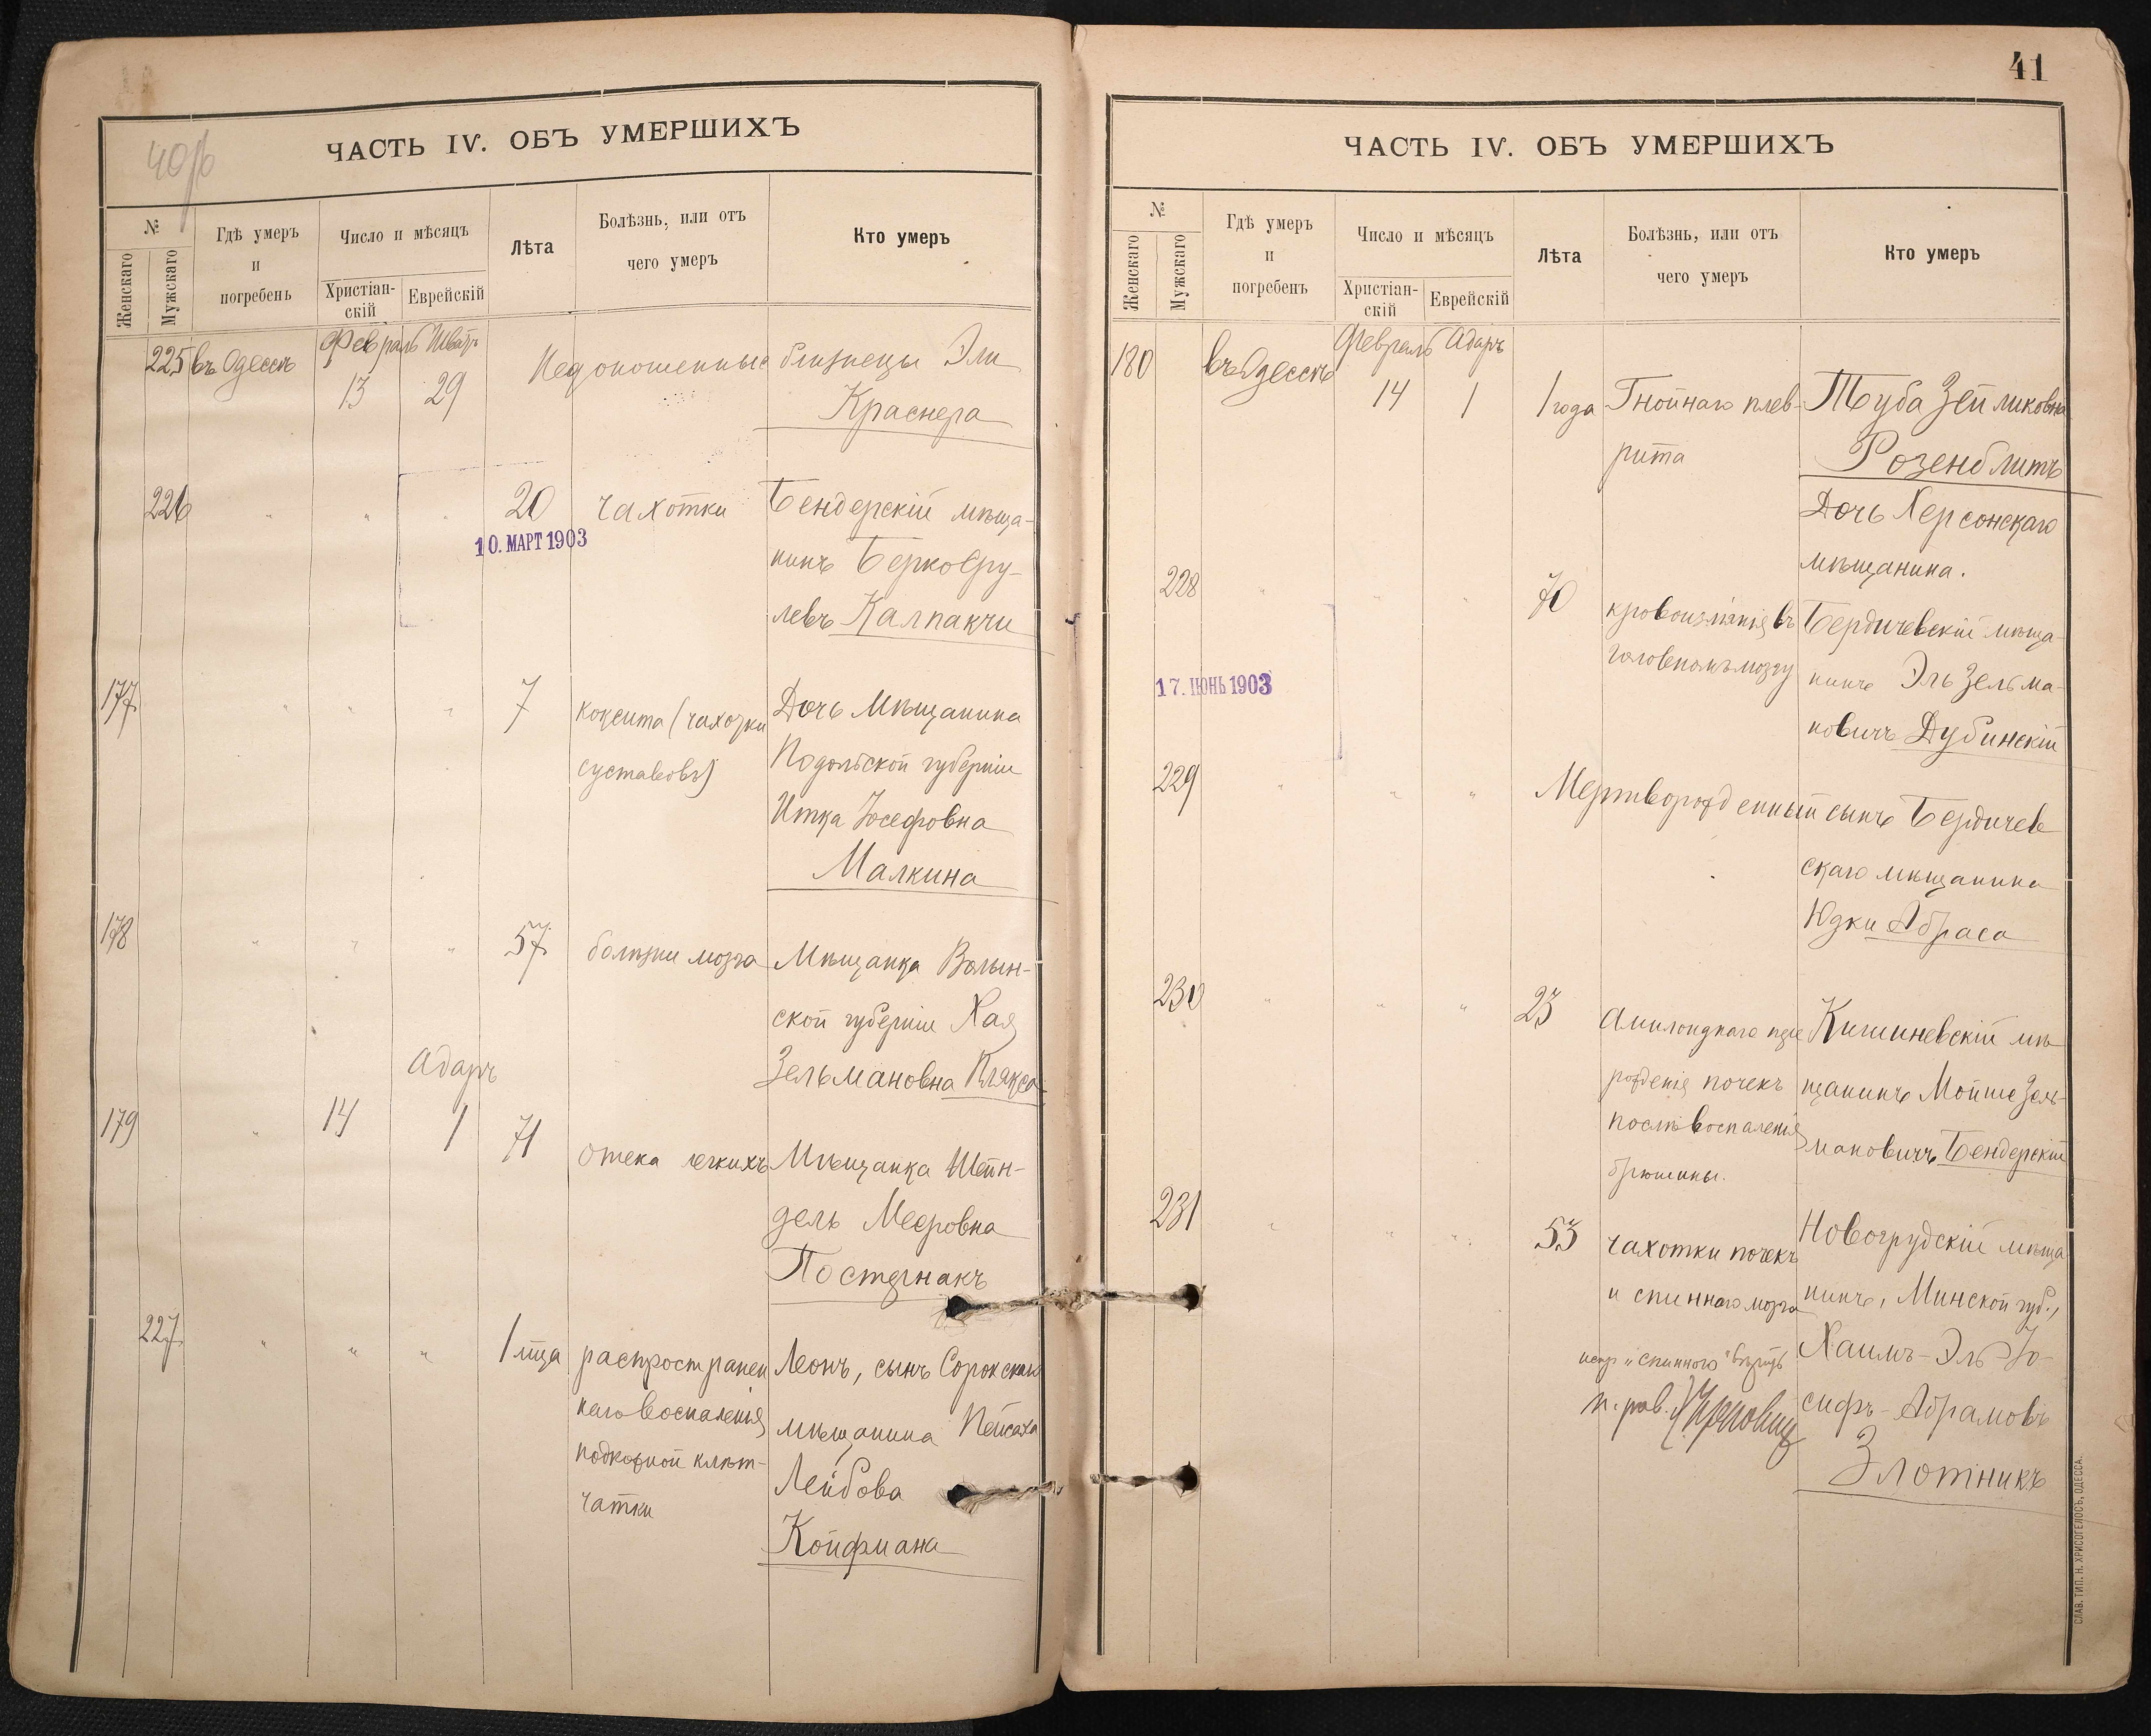 40/б
ЧАСТЬ IV. ОБЪ УМЕРШИХЪ
№
Женскаго
Мужскаго
Гдѣ умеръ
и
погребенъ
Число и мѣсяцъ
Христіан-
скій
Еврейскій
Лѣта
Болѣзнь, или отъ
чего умеръ
Кто умеръ
225 въ Одессѣ
Февраль Шватъ
13 29
Недоношенные близнецы Эли
Краснера
226 " " " 20 чахотки Бендерскій мѣща-
10. МАРТ 1903
нинъ Берко Сру-
левъ Калпакчи
177 " " " 7 коксита (чахотки Дочь Мѣщанина
суставовъ) Подольской губерніи
Итка Іосефовна
Малкина
178 " " " 57 болѣзни мозга Мѣщанка Волын-
ской губерніи Хая
Адаръ
Зельмановна Клякса
179 " 14 1 71 отека легкихъ Мѣщанка Шейн-
дель Мееровна
Постернакъ
227 " " " 1 мца распространен Леонъ, сынъ Сорокскаго
наго воспаленія мѣщанина Пейсаха
подкожной клѣт- Лейбова
чатки
Койфмана
41
ЧАСТЬ IV. ОБЪ УМЕРШИХЪ
№
Женскаго
Мужскаго
Гдѣ умеръ
и
погребенъ
Число и мѣсяцъ
Христіан-
скій
Еврейскій
Лѣта
Болѣзнь, или отъ
чего умеръ
Кто умеръ
180 въ Одессѣ
Февраль Адаръ
14 1 1 года Гнойнаго плев- Туба Зейликовна
рита Розенблитъ
Дочь Херсонскаго
мѣщанина.
228 " " " 70 кровоизліянія въ Бердичевскій мѣща-
головномъ мозгу нинъ Эль Зельма-
17. ІЮНЬ 1903
новичъ Дубинскій
229 " " " Мертворожденный сынъ Бердичев
скаго мѣщанина
Юдки Абраса
230 " " " 23 Амилоиднаго пере Кишиневскій мѣ
рожденія почекъ щанинъ Мойше Зель-
послѣ воспаленія мановичъ Бендерскій
брюшины.
231 " " " 53 чахотки почекъ Новогрудскій мѣща
и спиннаго мозга нинъ, Минской губ.,
испр "спиннаго" вѣрить Хаимъ-Эль-Іо-
п. рав. сифъ-Абрамовъ
Злотникъ
СЛАВ. ТИП. Н. ХРИСОГЕЛОСЪ, ОДЕССА.